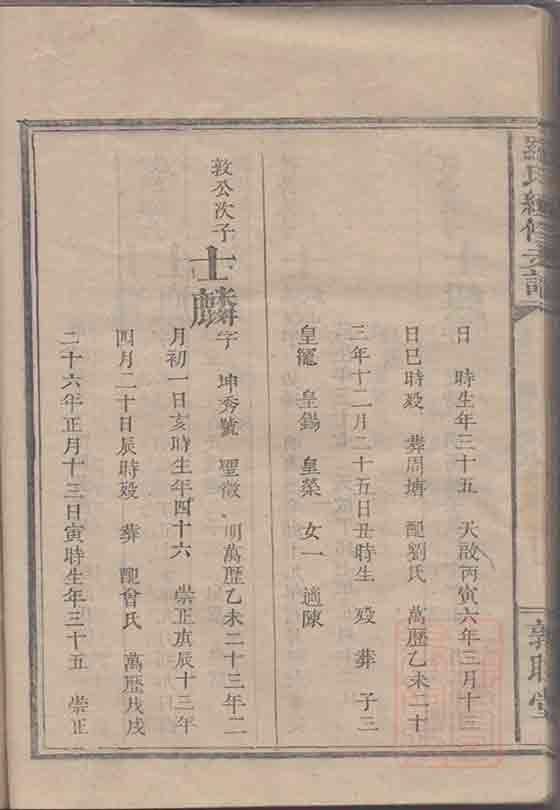 日　時生年三十五　天啟丙寅六年三月十三
日巳時殁　葬周塘　配劉氏　萬歷乙未二十
三年十二月二十五日丑時生　殁　葬　子三
皇寵　皇錫　皇榮　女一　適陳
敦公次子
士麟
字　坤秀號　聖徵　明萬歷乙未二十三年二
月初一日亥時生年四十六　崇正庚辰十三年
四月二十日辰時殁　葬　配曾氏　萬歷戊戌
二十六年正月十三日寅時生年三十五　崇正